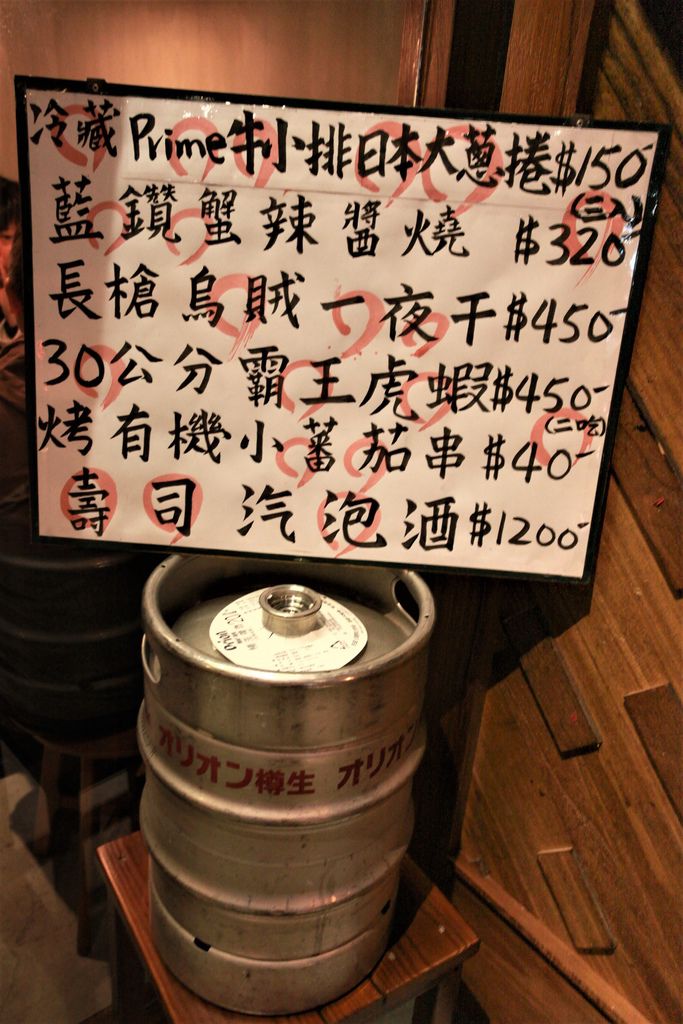 冷藏Prime牛小排日本大蔥捲$150
(三入)
藍鑽蟹辣醬燒 $320
長槍烏賊一夜干$450
30公分霸王虎蝦$450
(二吃)
烤有機小蕃茄串 $40
壽司汽泡酒$1200
オリオン樽生 オリオン